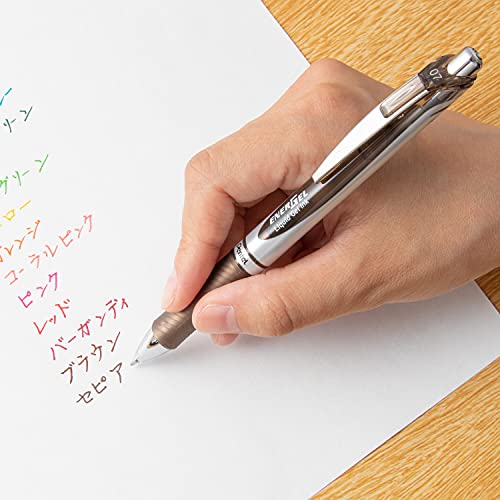 ー
リーン
グリーン
ロー
オレンジ
コーラルピンク
ピンク
レッド
バーガンディ
ブラウン
セピア
ENERGEL
Liquid Gel Ink
Pentel
0.7